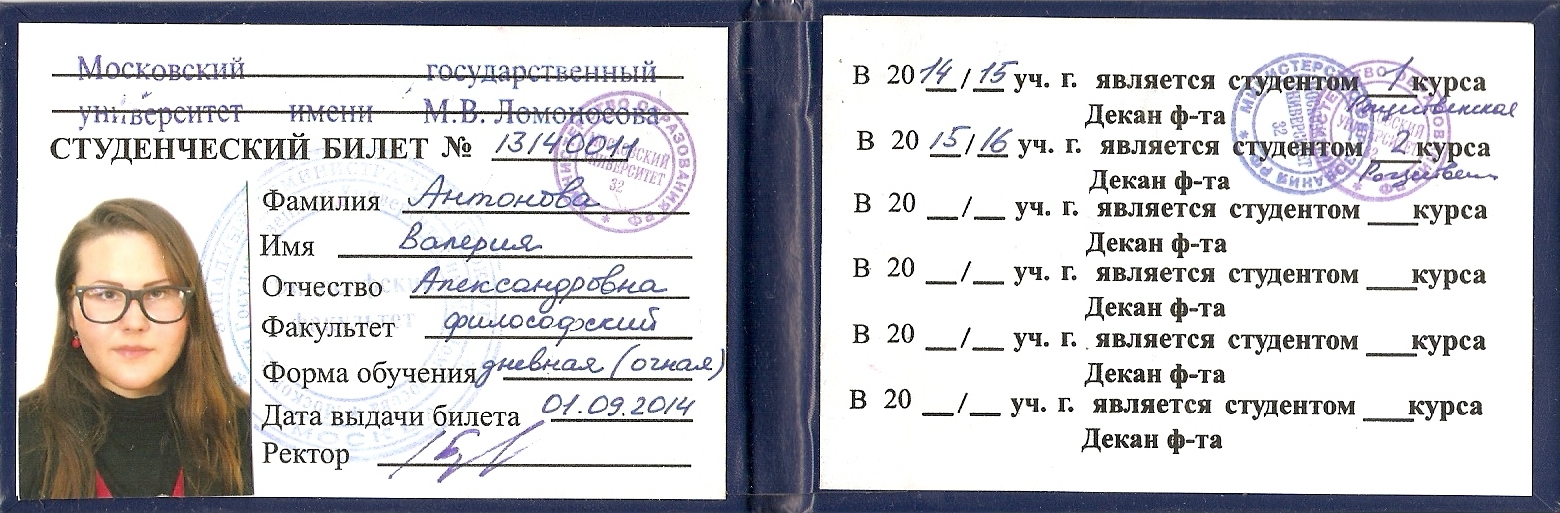 Московский государственный
университет имени М.В. Ломоносова
СТУДЕНЧЕСКИЙ БИЛЕТ № 13140011
Фамилия Антонова
Имя Валерия
Отчество Александровна
Факультет философский
Форма обучения дневная (очная)
Дата выдачи билета 01.09.2014
Ректор
В 2014/15 уч. г. является студентом 1 курса
Декан ф-та Рождественская
В 2015/16 уч. г. является студентом 2 курса
Декан ф-та
В 20 __/__ уч. г. является студентом ___курса
Декан ф-та
В 20 __/__ уч. г. является студентом ___курса
Декан ф-та
В 20 __/__ уч. г. является студентом ___курса
Декан ф-та
В 20 __/__ уч. г. является студентом ___курса
Декан ф-та